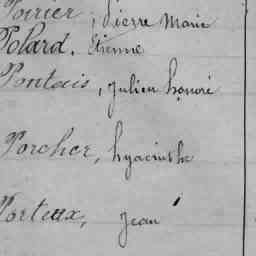 Poirier, Pierre Marie
Polard, Etienne
Pontais, Julien honoré
Porcher, hyacinthe
Porteux, Jean